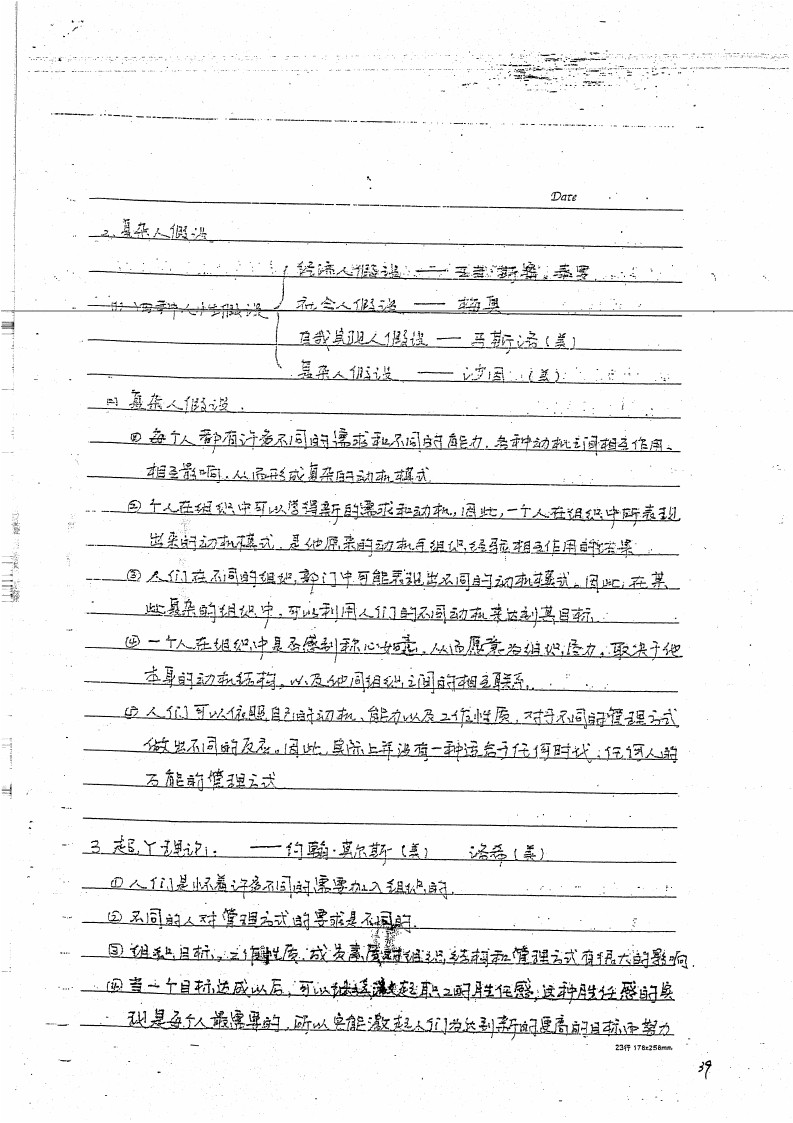 Date
2. 复杂人假设
经济人假设 —— 亚当·斯密、泰罗
(1) 四种人性假设 社会人假设 —— 梅奥
自我实现人假设 —— 马斯洛(美)
复杂人假设 —— 沙因(美)
(2) 复杂人假设.
① 每个人都有许多不同的需求和不同的能力.各种动机之间相互作用、
相互影响.从而形成复杂的动机模式
② 个人在组织中可以学得新的需求和动机,因此,一个人在组织中所表现
出来的动机模式.是他原来的动机与组织经验相互作用的结果
③ 人们在不同的组织,部门中可能表现出不同的动机模式。因此,在某
些复杂的组织中.可以利用人们的不同动机来达到其目标
④ 一个人在组织中是否感到称心如意,从而愿意为组织尽力,取决于他
本身的动机结构。以及他同组织之间的相互联系.
⑤ 人们可以依照自己的动机、能力以及工作性质.对于不同的管理方式
做出不同的反应。因此,实际上并没有一种适合于任何时代;任何人的
万能的管理方式
3 超Y理论: —— 约翰·莫尔斯(美) 洛希(美)
① 人们是怀着许多不同的需要加入组织的.
② 不同的人对管理方式的要求是不同的.
③ 组织目标,工作性质.成员素质对组织结构和管理方式有很大的影响.
④ 当一个目标达成以后,可以继续激起职工的胜任感.这种胜任感的实
现是每个人最需要的.所以它能激起人们为达到新的更高的目标而努力
23行 178x258mm
39